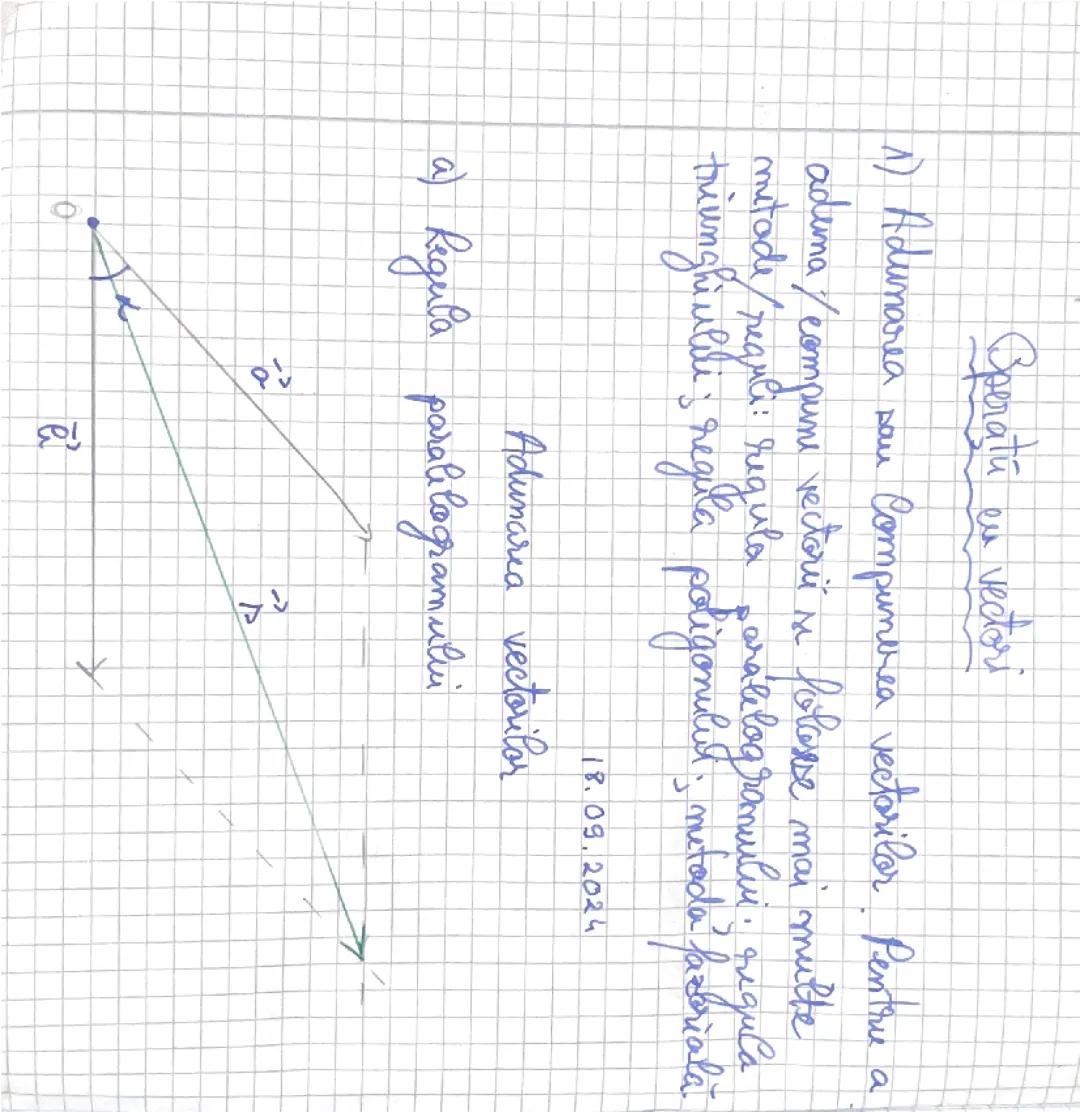 Operatii cu vectori
1) Adunarea sau Compunerea vectorilor. Pentru a
aduna / compune vectorii se folosesc mai multe
metode / reguli: regula paralelogramului; regula
triunghiului; regula poligonului; metoda fazorială.
18.09.2024
Adunarea vectorilor
a) Regula paralelogramului
a⃗
s⃗
α
O
b⃗